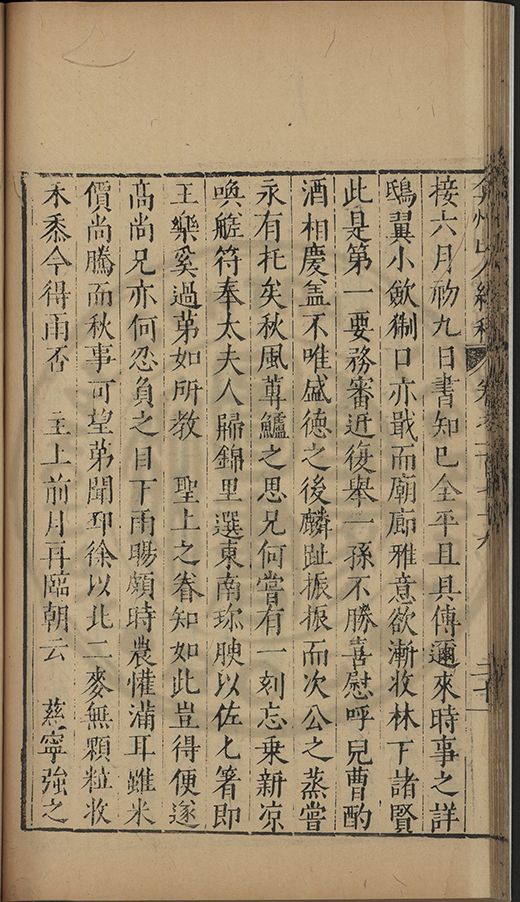 弇州山人續稿 卷之一百七十九 二十一
接六月初九日書知已全平且具傳邇來時事之詳
鴟翼小歛猘口亦戢而廟廊雅意欲漸收林下諸賢
此是第一要務審近復舉一孫不勝喜慰呼兒曹酌
酒相慶盖不唯盛德之後麟趾振振而次公之蒸嘗
永有托矣秋風蓴鱸之思兄何嘗有一刻忘乗新凉
喚艖符奉太夫人歸錦里選東南珎腴以佐匕箸即
王樂奚過苐如所教 聖上之眷知如此豈得便遂
高尚兄亦何忍負之目下雨暘頗時農懽滿耳雖米
價尚騰而秋事可望苐聞邳徐以北二麥無顆粒收
禾黍今得雨否 主上前月再臨朝云 慈寧強之